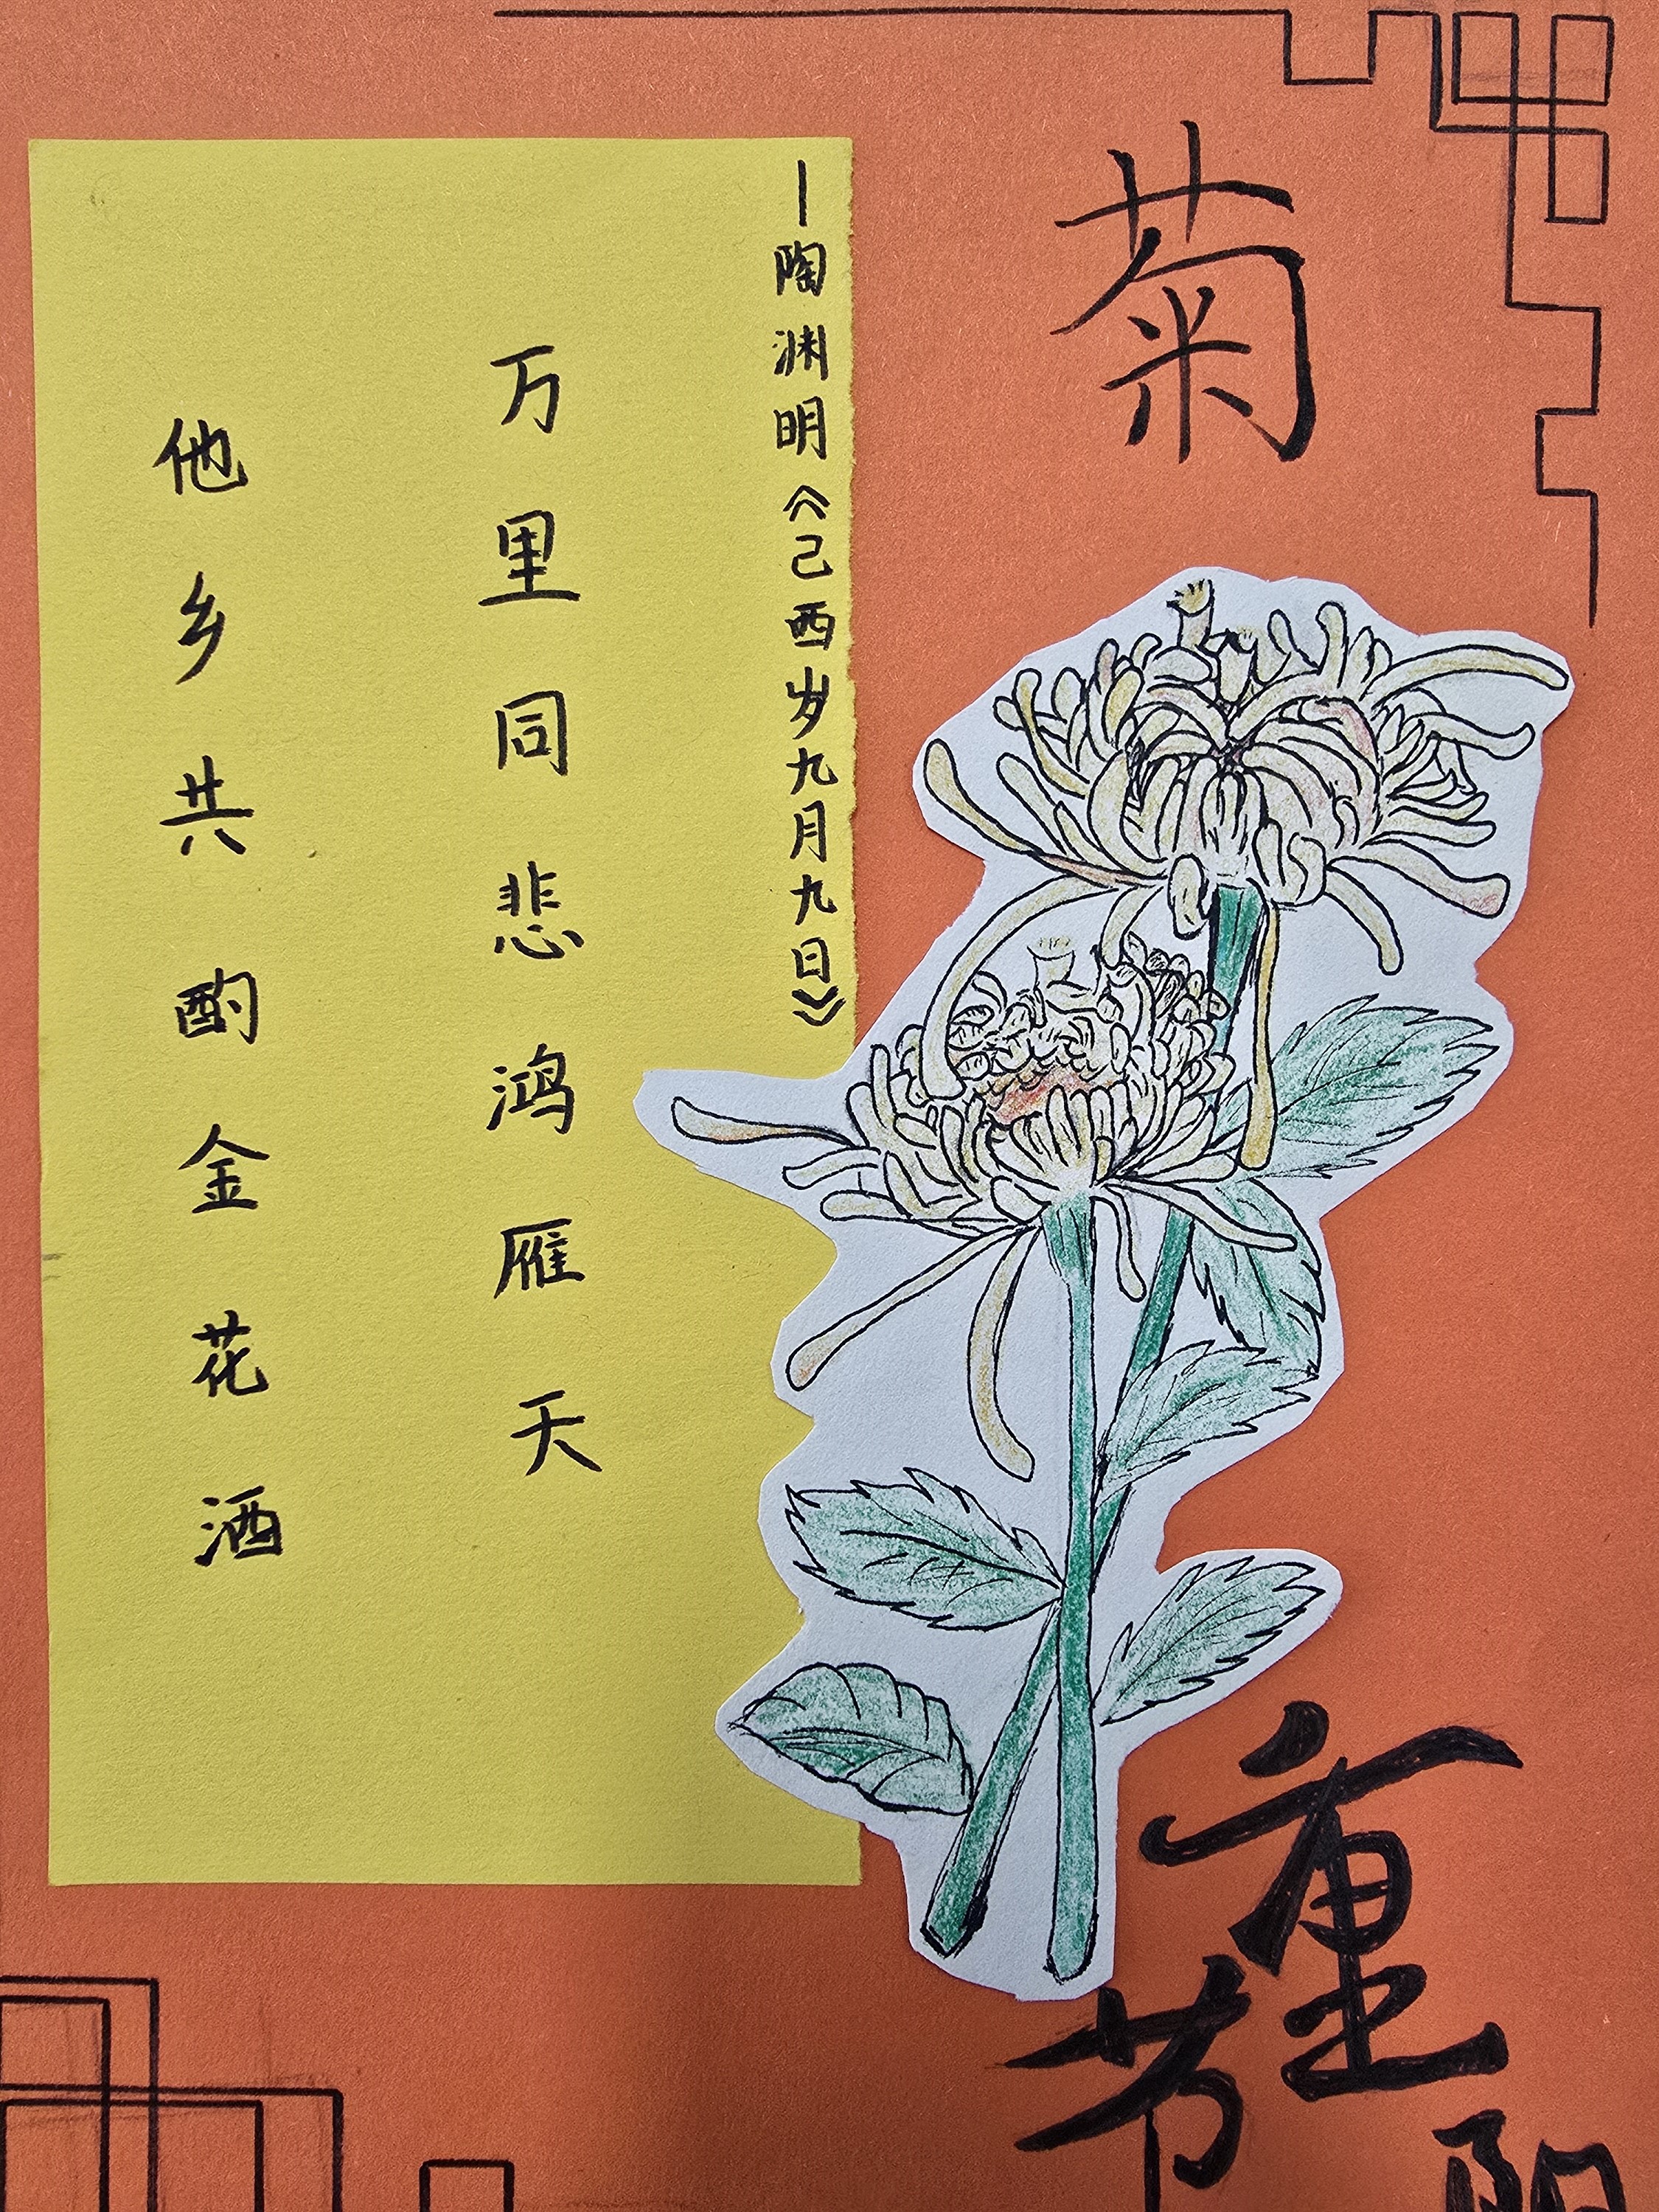 菊
重阳
节
—陶渊明《己西岁九月九日》
万里同悲鸿雁天
他乡共酌金花酒